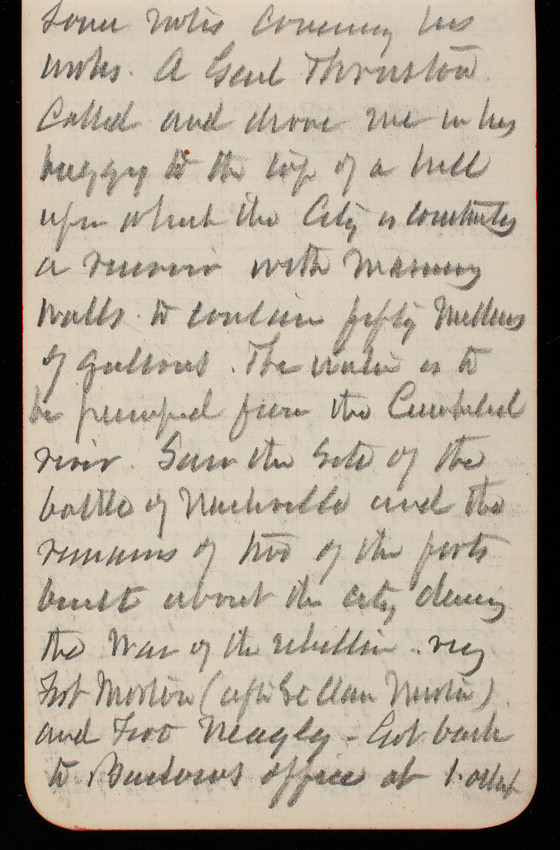 Some notes concerning his
works. A Genl Thruston
Called and drove me in his
buggy to the top of a hill
upon which the City is constructing
a reservoir with masonry
walls to contain fifty Millions
of gallons. The water is to
be pumped from the Cumbld
river. Saw the Site of the
battle of Nashville and the
remains of two of the forts
built about the city during
the War of the rebellion. viz
Fort Morton (after St Clair Morton)
and Fort Neagly - Got back
to Barlows office at 1. oclk